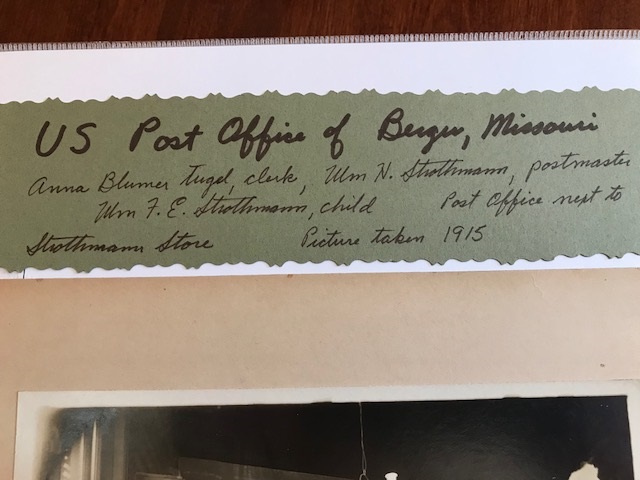 US Post Office of Berger, Missouri
Anna Blumer Tugel, clerk, Wm N. Strothmann, postmaster
Wm F. E. Strothmann, child Post Office next to
Strothmann Store Picture taken 1915